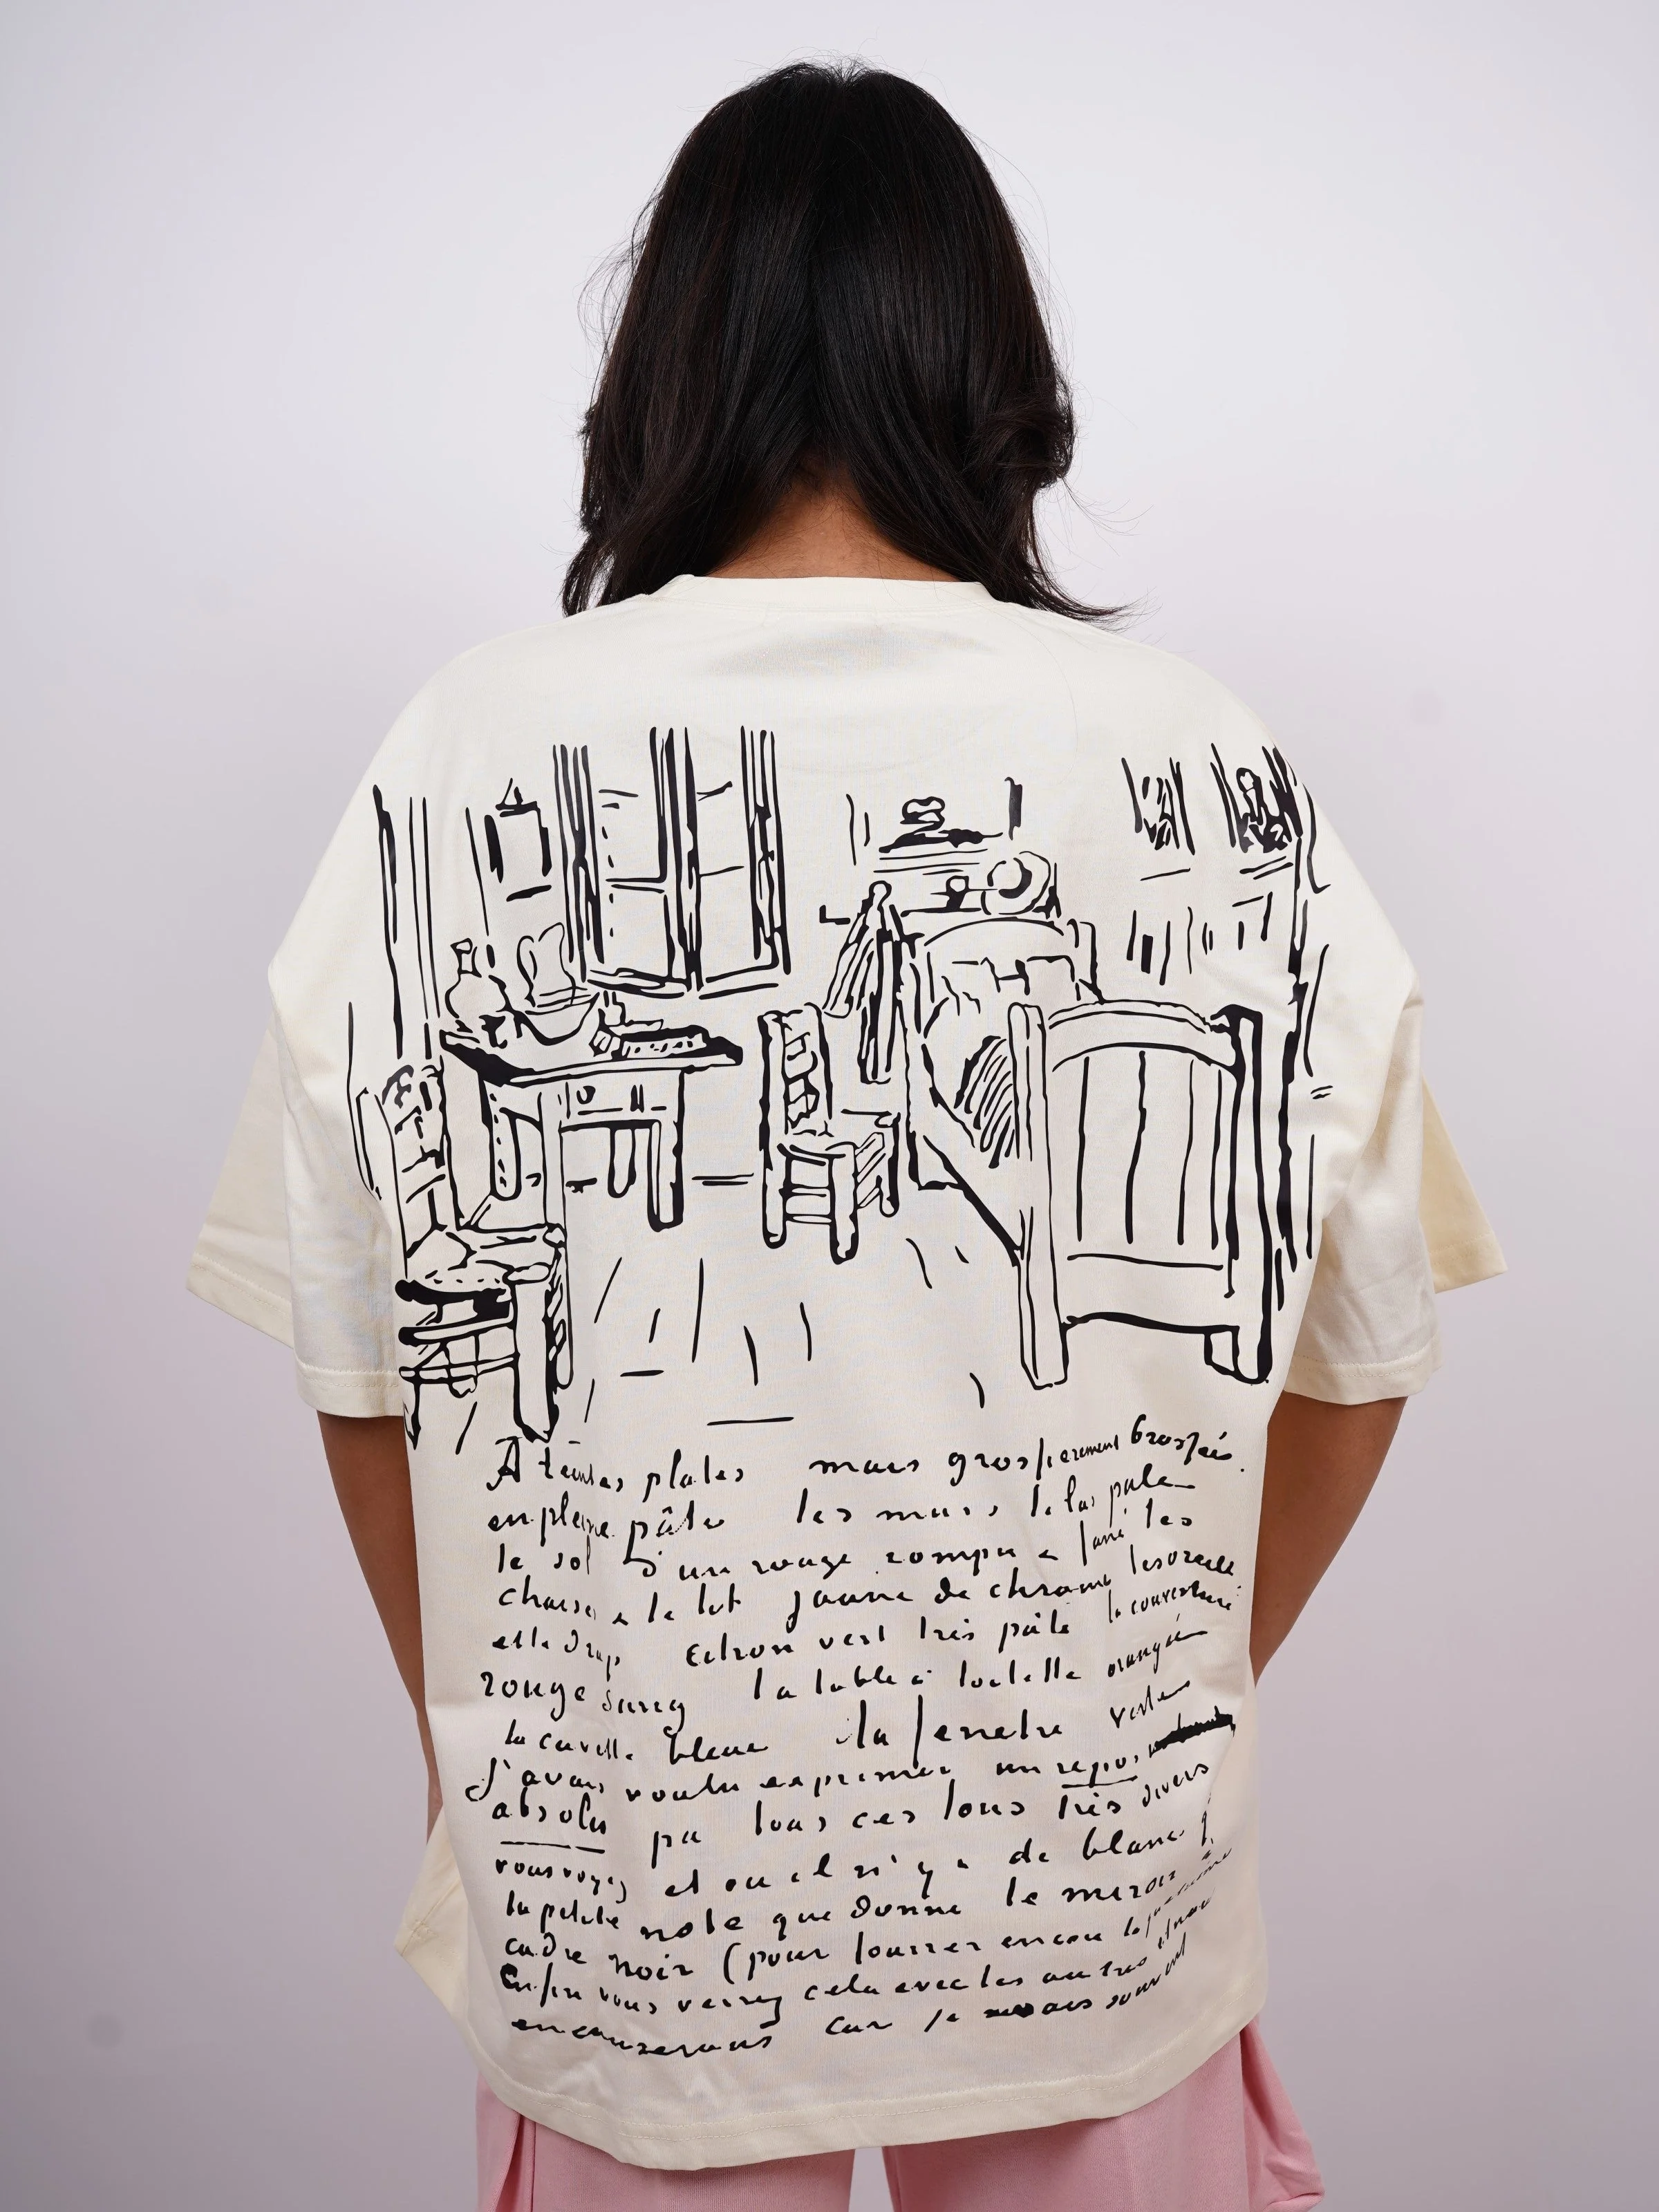 A teintes plates mais grossierement brossées
en pleine pâte les murs lilas pale
le sol d'un rouge rompu & fané les
chaises & le lit jaune de chrome les oreillers
et le drap citron vert très pâle la couverture
rouge sang la table à toilette orangée
la cuvette bleue la fenetre verte
J'avais voulu exprimer un repos
absolu par tous ces tons très divers
vous voyez et ou il n'y a de blanc que
la petite note que donne le miroir à
cadre noir (pour fourrer encore la
Enfin vous verrez cela avec les autres et nous
en causerons car je vais souvent